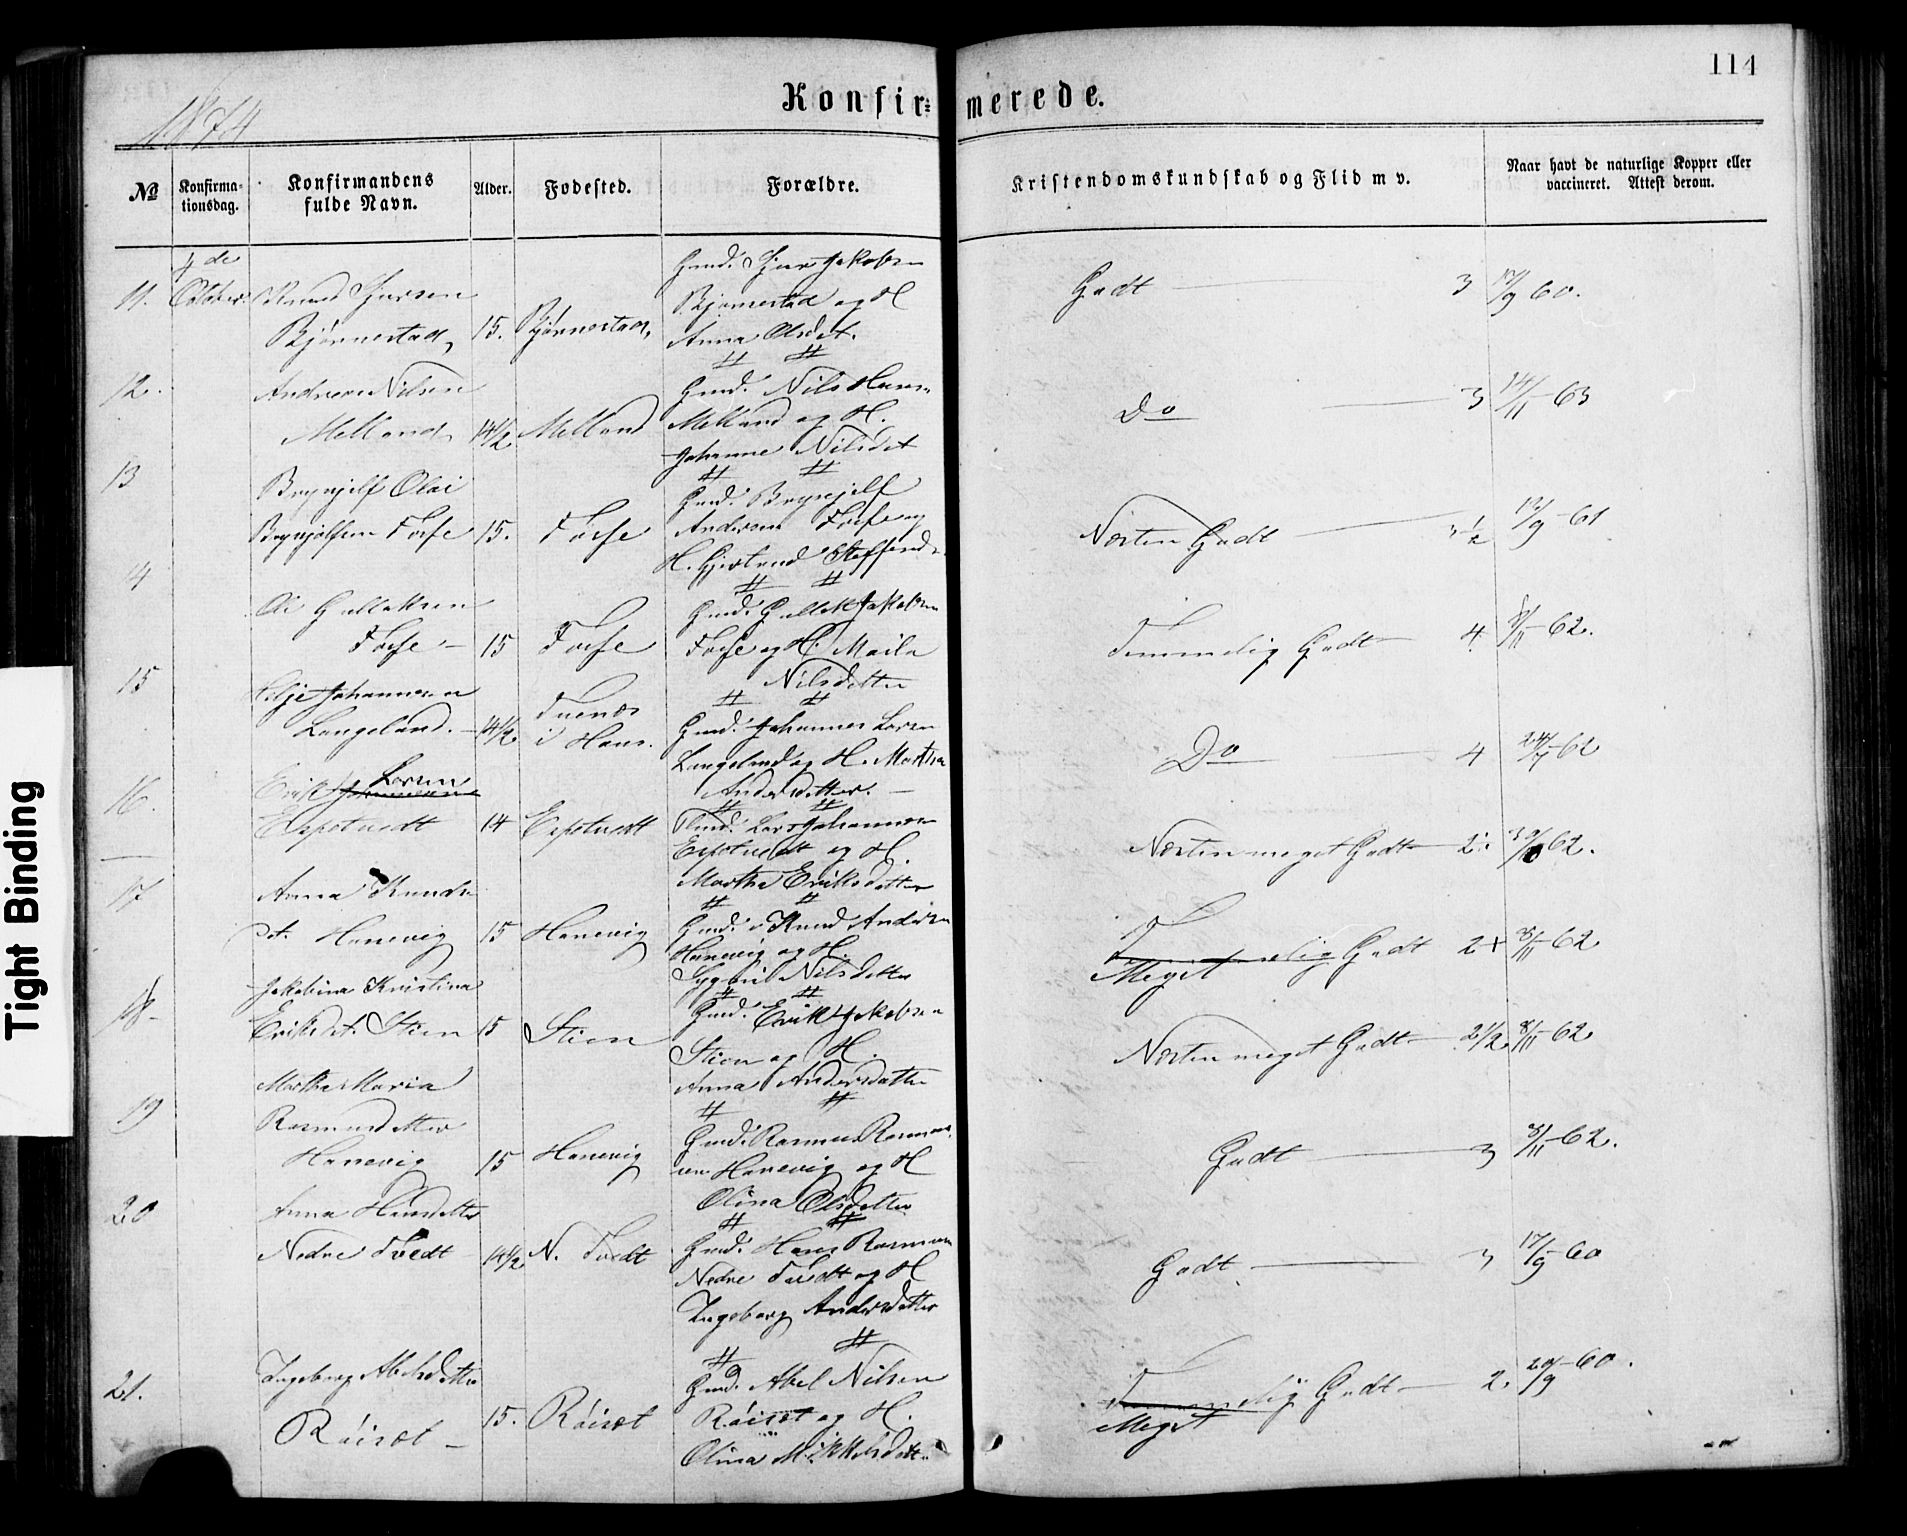 114
Konfir= merede.
1874
No Konfirma- tionsdag. Konfirmandens fulde Navn. Alder. Fødested. Forældre. Kristendomskundskab og Flid m v. Naar havt de naturlige Kopper eller vaccineret. Attest derom.
4de
11. October Knud Sjursen
Bjørnestad, 15. Bjørnestad,
Gmd. Sjur Jakobsen
Bjørnestad og H
Anna Olsdt.
Godt 3 17/9 60.
12. Andreas Nilsen
Melland, 14 1/2 Melland
Gmd. Nils Hans.
Melland og H.
Johanne Nilsdt
Do 3 14/11 63
13 Brynjulf Olai
Brynjulfsen Fosse 15. Fosse
Gmd. Brynjulf
Andersen Fosse og
H. Gjertrud Steffensd.
Næsten Godt 3 1/2 12/9 61
14 Ole Gulleksen
Fosse - 15 Fosse
Gmd. Gullek Jakobsen
Fosse og H. Maila
Nilsdatter
Temmelig Godt 4 8/11 62.
15 Silje Johannesen
Langeland. - 14 1/2
i Hans.
Gmd. Johannes Larsen
Langeland og H. Martha
Andersdatter. -
Do 4 24/7 62
16. Erik Johannesen Larsen
Espetvedt 14 Espetvedt
Gmd. Lars Johannesen
Espetvedt og H.
Martha Eriksdatter
Næsten meget Godt 2. 62.
17 Anna Knuds-
dt. Hanevig 15 Hanevig
Gmd. Knud Andersen
Hanevig og H.
Sygni Nilsdatter
Temmelig Godt 2+ 8/11 62
Meget
18. Jakobina Kristina
Eriksdt. Stien 15 Stien
Gmd. Erik Jakobsen
Stien og H.
Anna Andersdatter
Næsten meget Godt 2 1/2 8/11 62
19 Martha Maria
Rasmusdatter
Hanevig 15 Hanevig
Gmd. Rasmus Rasmus-
sen Hanevig og H
Olina Olsdatter
Godt 3 8/11 62.
20 Anna Hansdatter
Nedre Tvedt 14 1/2 N. Tvedt
Gmd. Hans Rasmusen
Nedre Tvedt og H
Ingeborg Andersdatter
Godt 3 17/9 60
21. Ingeborg Abelsdatter
Röiset - 15. Röiset
Gmd. Abel Nilsen
Röiset og H.
Olina Mikkelsdatter
Temmelig Godt 2. 20/9 60.
Meget
Tight Binding